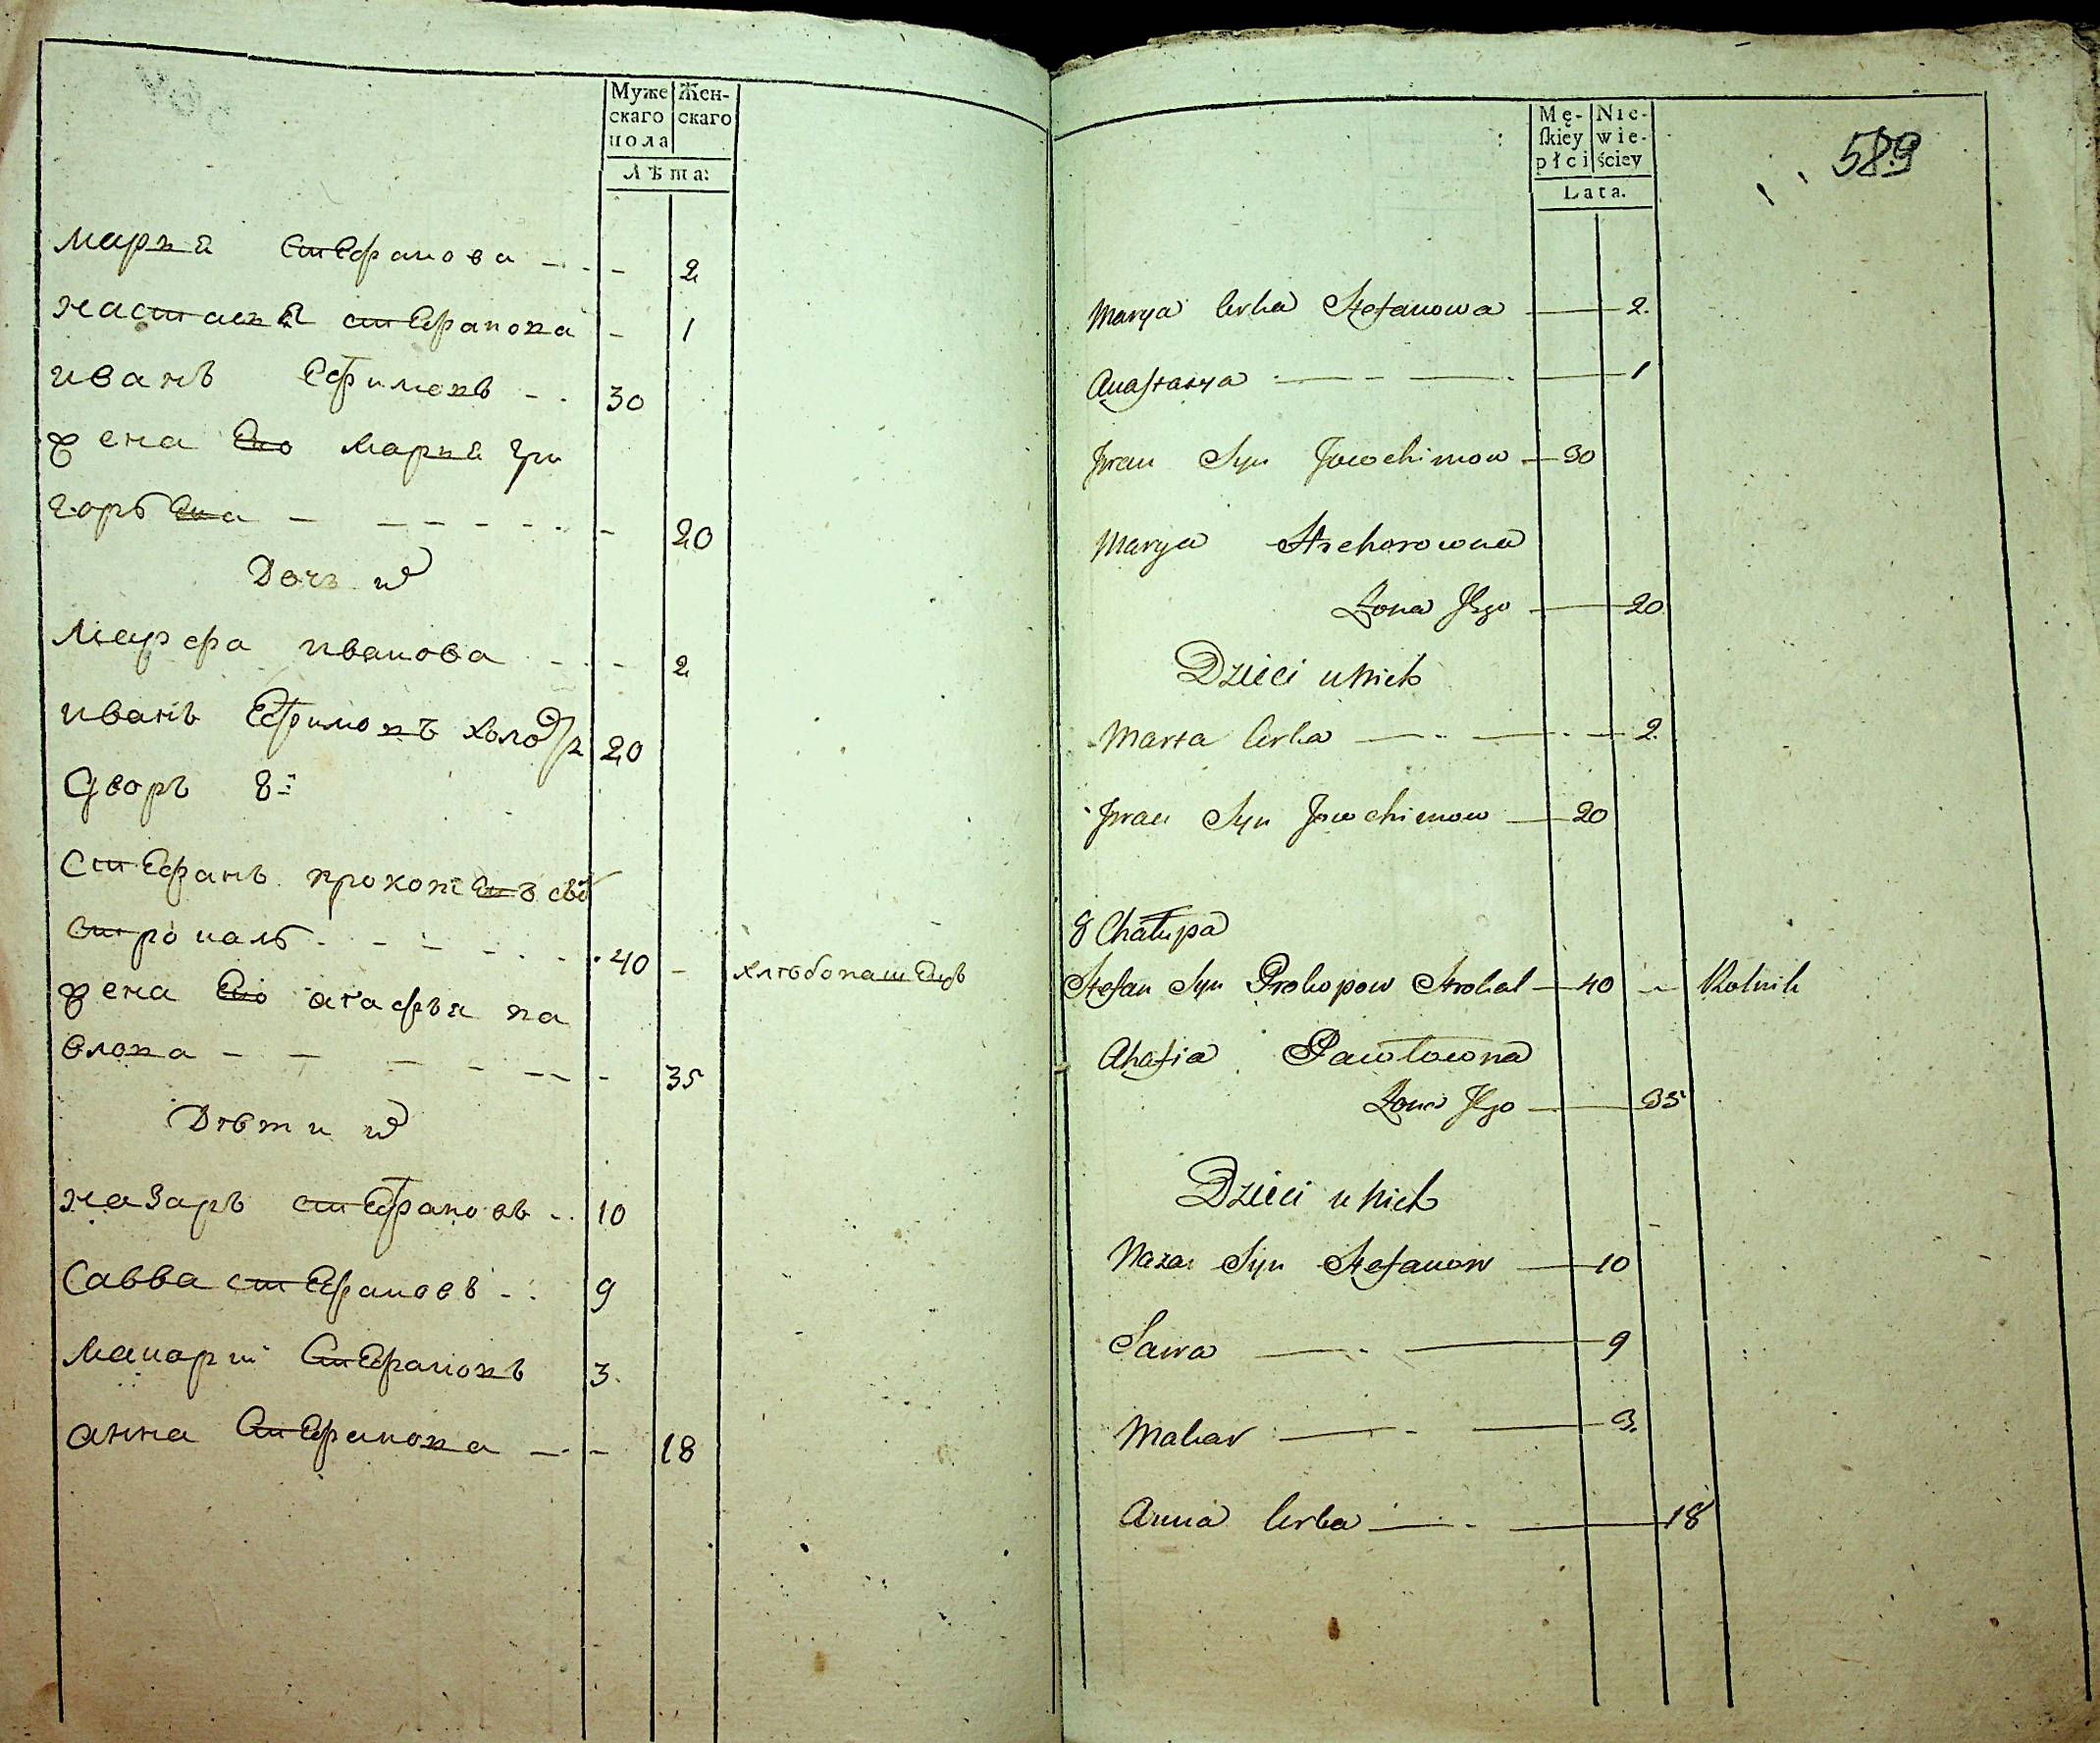 Муже
скаго
пола
Жен-
скаго
Лѣта:
Мария Стефанова - - - 2
Настасия Стефанова - 1
Иванъ Ефимовъ - - 30
жена его Мария Гри
горьева - - - - - - 20
Дочь их
Марфа Иванова - - - 2
Иванъ Ефимовъ холос 20
Дворъ 8й
Стефанъ Прокопевъ сынъ
Строкаль - - - - - 40 - хлѣбопашецъ
жена его Агафья Па
влова - - - - - - - 35
Дѣти их
Назаръ Стефановъ - - 10
Савва Стефановъ - - 9
Макарий Стефановъ 3
Анна Стефанова - - - 18
Mę-
skiey
płci
Nie-
wie-
ściey
Lata.
589
Marya Curka Stefanowa — 2.
Anastazya — - — 1
Iwan Syn Jowchimow — 30
Marya Hrehorowna
Zona Jego — 20
Dzieci u Nich
Marta Curka — - — - — 2.
Iwan Syn Jowchimow — 20
8 Chałupa
Stefan Syn Prokopow Strokal — 40 - Rolnik
Ahafia Pawłowna
Zona Jego — 35
Dzieci u Nich
Nazar Syn Stefanow — 10
Sawa — - — 9
Makar — - — 3.
Anna Curka — - — 18